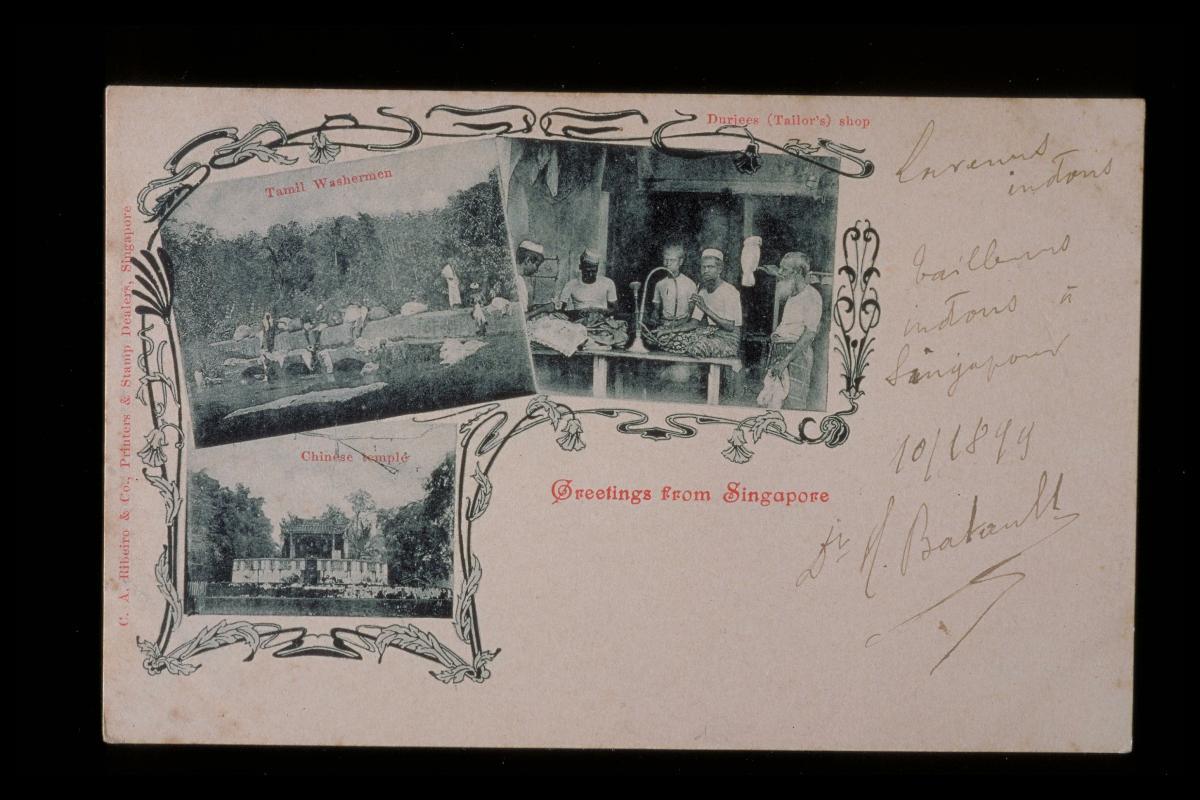 Durjees (Tailor's) shop
Tamil Washermen
Chinese temple
Greetings from Singapore
C. A. Ribeiro & Co., Printers & Stamp Dealers, Singapore
Laveurs
indous
tailleurs
indous à
Singapour
10/1899
Dr Batault